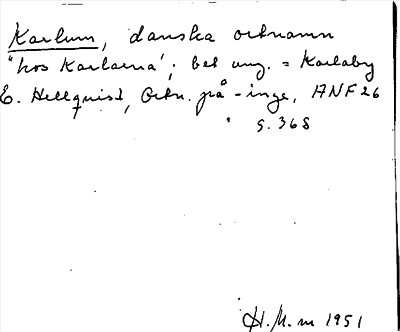 Karlum, danska ortnamn
"hos Karlarna"; bet ung. = Karlaby
E. Hellquist, Ortn. på -inge, ANF 26
s. 368
H.M.m 1951